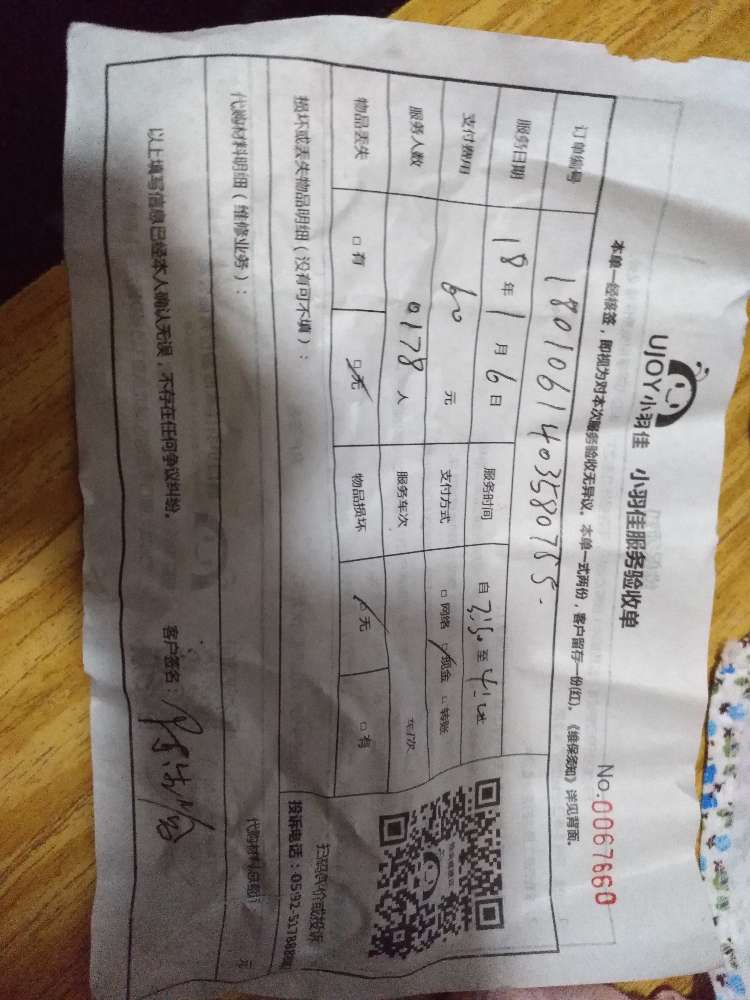 UJOY小羽佳 小羽佳服务验收单 No.0067660
本单一经核签，即视为对本次服务验收无异议。本单一式两份，客户留存一份(红)，《维保须知》详见背面。
订单编号 180106140358075
服务日期 18年1月6日 服务时间 自 至
支付费用 60元 支付方式 □网络 □现金 □转账
服务人数 0178人 服务车次 车/次
物品丢失 □有 □无 物品损坏 □无 □有
损坏或丢失物品明细（没有可不填）：
扫码评价或投诉
投诉电话：0592-5178
代购材料明细（维修业务）： 代购材料总额 元
以上填写信息已经本人确认无误，不存在任何争议纠纷。 客户签名：